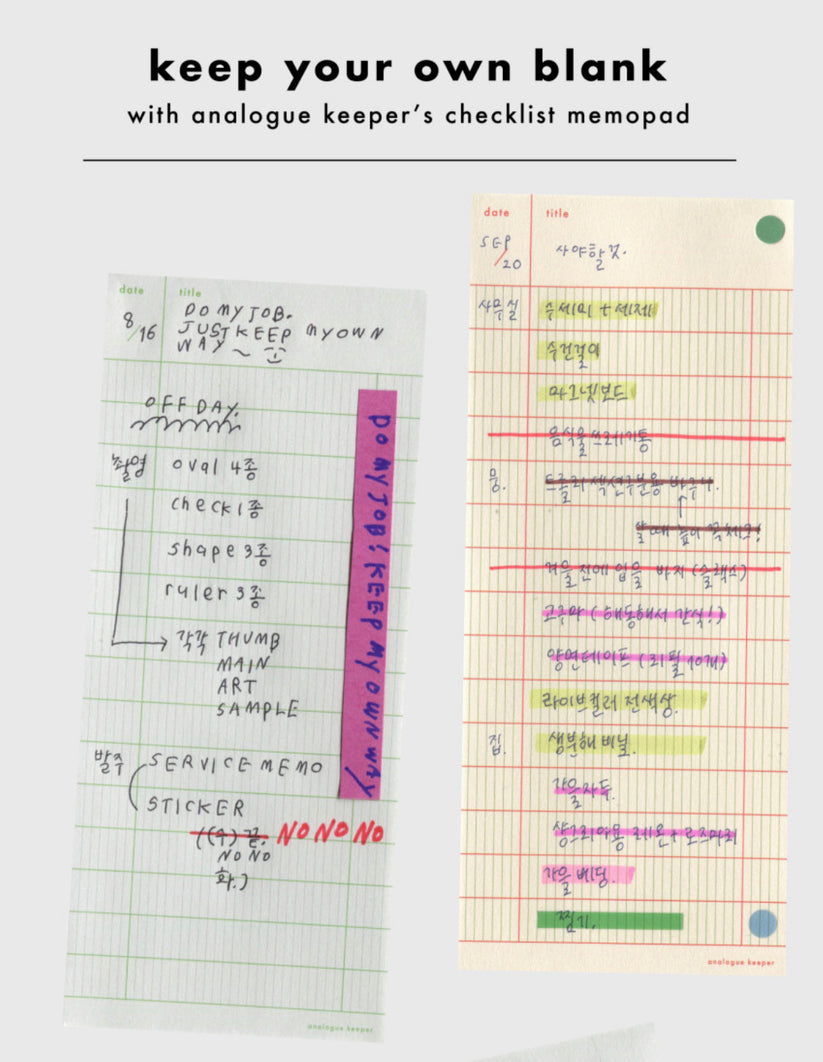 keep your own blank
with analogue keeper's checklist memopad
date title
8/16
DO MY JOB.
JUST KEEP MY OWN
WAY ~
OFF DAY.
촬영 oval 4종
check 1종
shape 3종
ruler 3종
각각 THUMB
MAIN
ART
SAMPLE
발주 SERVICE MEMO
STICKER
NO NO NO
NO NO
DO MY JOB! KEEP MY OWN WAY
analogue keeper
date title
SEP/20 사야할것.
사무실 수세미 + 세제
수건걸이
마그넷보드
음식물쓰레기통
뭉.
겨울전에 입을 바지 (슬랙스)
고구마 (해동해서 간식!)
양면테이프 (리필 10개)
라이브컬러 전색상.
집. 생분해 비닐.
가을자두.
샹그리아용 레몬 + 로즈마리
가을 베딩.
찜기.
analogue keeper